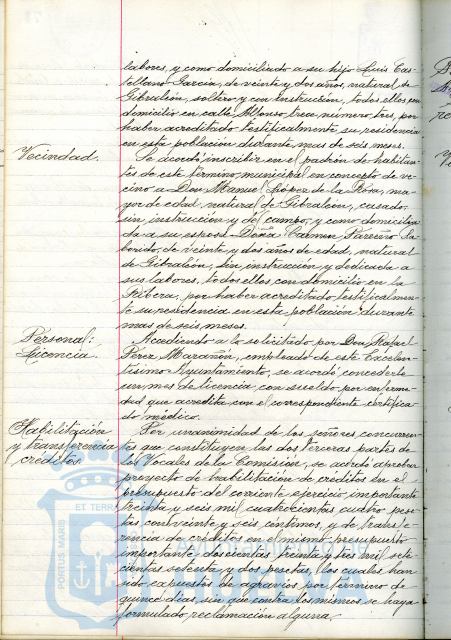 labores, y como domiciliado a su hijo Luis Cas-
tellano García, de veinte y dos años, natural de
Gibraleón, soltero y con instrucción, todos ellos con
domicilio en calle Alfonso trece, número tres, por
haber acreditado testificalmente su residencia
en esta población durante mas de seis meses.
Vecindad.
Se acordó inscribir en el padrón de habitan-
tes de este término municipal en concepto de ve-
cino a Don Manuel López de la Rosa, ma-
yor de edad, natural de Gibraleón, casado,
sin instrucción y del campo, y como domicilia-
da a su esposa Doña Carmen Parreño Sa-
borido, de veinte y dos años de edad, natural
de Gibraleón, sin instrucción, y dedicada a
sus labores, todos ellos con domicilio en la
Ribera, por haber acreditado testificalmen-
te su residencia en esta población durante
mas de seis meses.
Personal:
Licencia.
Accediendo a lo solicitado por Don Rafael
Pérez Marañón, empleado de este Excelen-
tísimo Ayuntamiento, se acordó concederle
un mes de licencia, con sueldo, por enferme-
dad que acredita con el correspondiente certifica-
do médico.
Habilitación
y transferencia
créditos.
Por unanimidad de los señores concurren-
tes que constituyen las dos terceras partes de
los Vocales de la Comisión, se acordó aprobar
proyecto de habilitación de créditos en el
presupuesto del corriente ejercicio, importante
treinta y seis mil cuatrocientas cuatro pese-
tas con veinte y seis céntimos, y de transfe-
rencia de créditos en el mismo presupuesto
importante doscientas treinta y tres mil sete-
cientas setenta y dos pesetas, los cuales han
sido expuestos de agravios por término de
quince días, sin que contra los mismos se haya
formulado reclamación alguna.
PORTUS MARIS
ET TERR